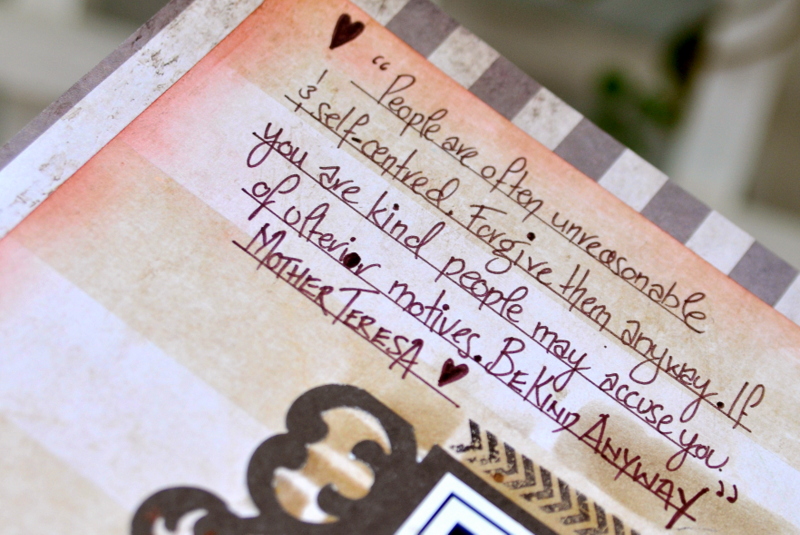 "People are often unreasonable
& self-centred. Forgive them anyway. If
you are kind people may accuse you
of ulterior motives. Be Kind Anyway"
Mother Teresa